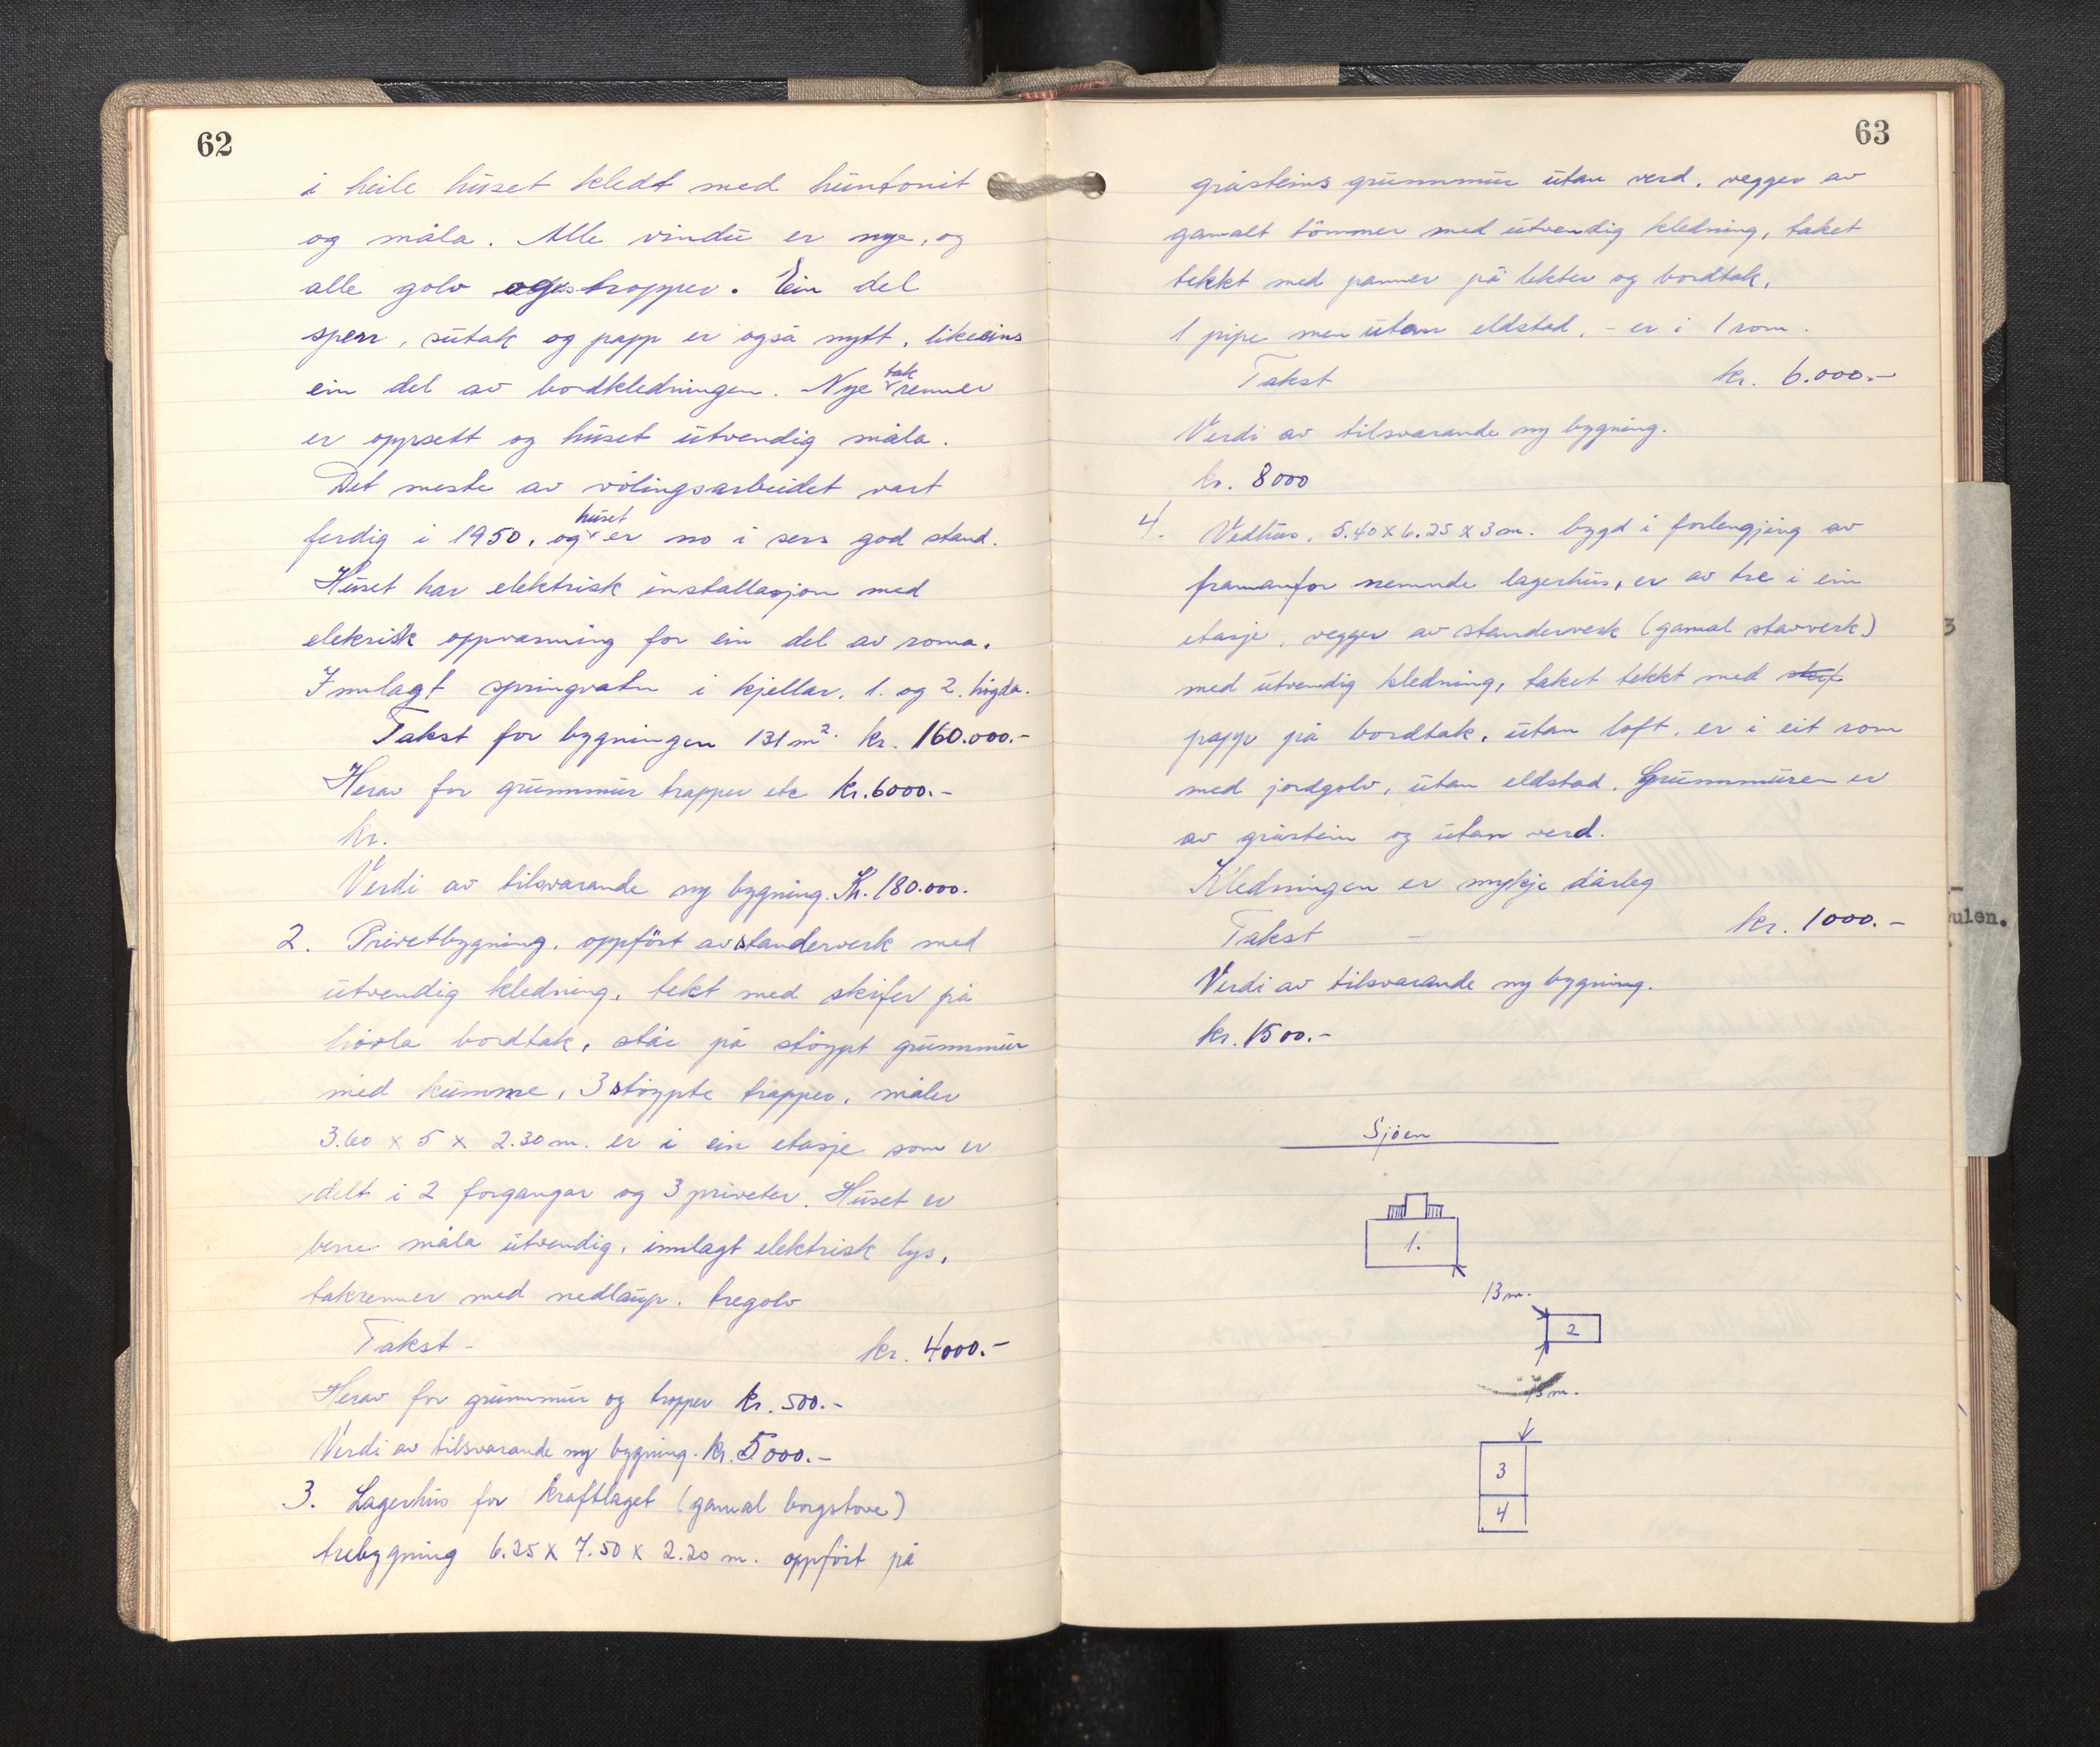 62
i heile huset kledt med huntonit
og måla. Alle vindu er nye, og
alle golv og trapper. Ein del
sperr, sutak og papp er også nytt, likeeins
ein del av bordkledningen. Nye takrenner
er oppsett og huset utvendig måla.
Det meste av vølingsarbeidet vart
ferdig i 1950, og huset er no i sers god stand.
Huset har elektrisk installasjon med
elekrisk oppvarming for ein del av roma.
Innlagt springvatn i kjellar, 1. og 2. høgda.
Takst for bygningen 131 m². kr. 160.000.-
Herav for grunnmur trapper etc kr. 6000.-
kr.
Verdi av tilsvarande ny bygning. Kr. 180.000.
2. Privetbygning, oppført av standerverk med
utvendig kledning, tekt med skifer på
høvla bordtak, står på støypt grunnmur
med kumme, 3 støypte trapper, måler
3.60 x 5 x 2.30 m. er i ein etasje som er
delt i 2 forgangar og 3 priveter. Huset er
måla utvendig, innlagt elektrisk lys,
takrenner med nedlaup. tregolv
Takst - kr. 4000.-
Herav for grunnmur og trapper kr. 500.-
Verdi av tilsvarande ny bygning. kr. 5000.-
3. Lagerhus for kraftlaget (gamal borgstove)
trebygning 6.25 x 7.50 x 2.20 m. oppført på
63
gråsteins grunnmur utan verd, vegger av
gamalt tømmer med utvendig kledning, taket
tekkt med panner på lekter og bordtak,
1 pipe men utan eldstad, - er i 1 rom.
Takst kr. 6.000.-
Verdi av tilsvarande ny bygning.
kr. 8000
4. Vedhus, 5.40 x 6.25 x 3 m. bygd i forlengjing av
framanfor nemnde lagerhus, er av tre i ein
etasje, vegger av standerverk (gamal stavverk)
med utvendig kledning, taket tekkt med
papp på bordtak, utan loft, er i eit rom
med jordgolv, utan eldstad. Grunnmuren er
av gråstein og utan verd.
Kledningen er mykje dårleg
Takst - kr. 1000.-
Verdi av tilsvarande ny bygning.
kr. 1500.-
Sjøen
1.
13 m.
2
15 m.
3
4
3
ulen.